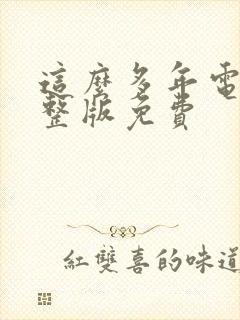 這麼多年電
整版免費
紅雙喜的味道